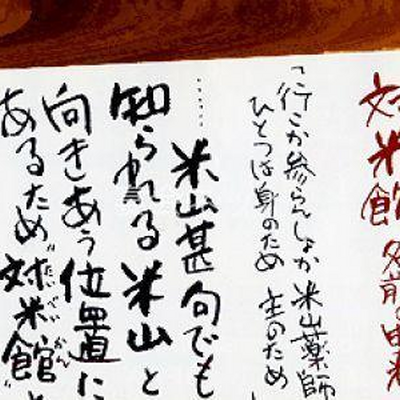 対米館 名前の由来
「行こか参らんしょか 米山薬師
ひとつは身のため 主のため
……米山甚句でも
知られる米山と
向きあう位置に
あるため"対米館
たいべいかん